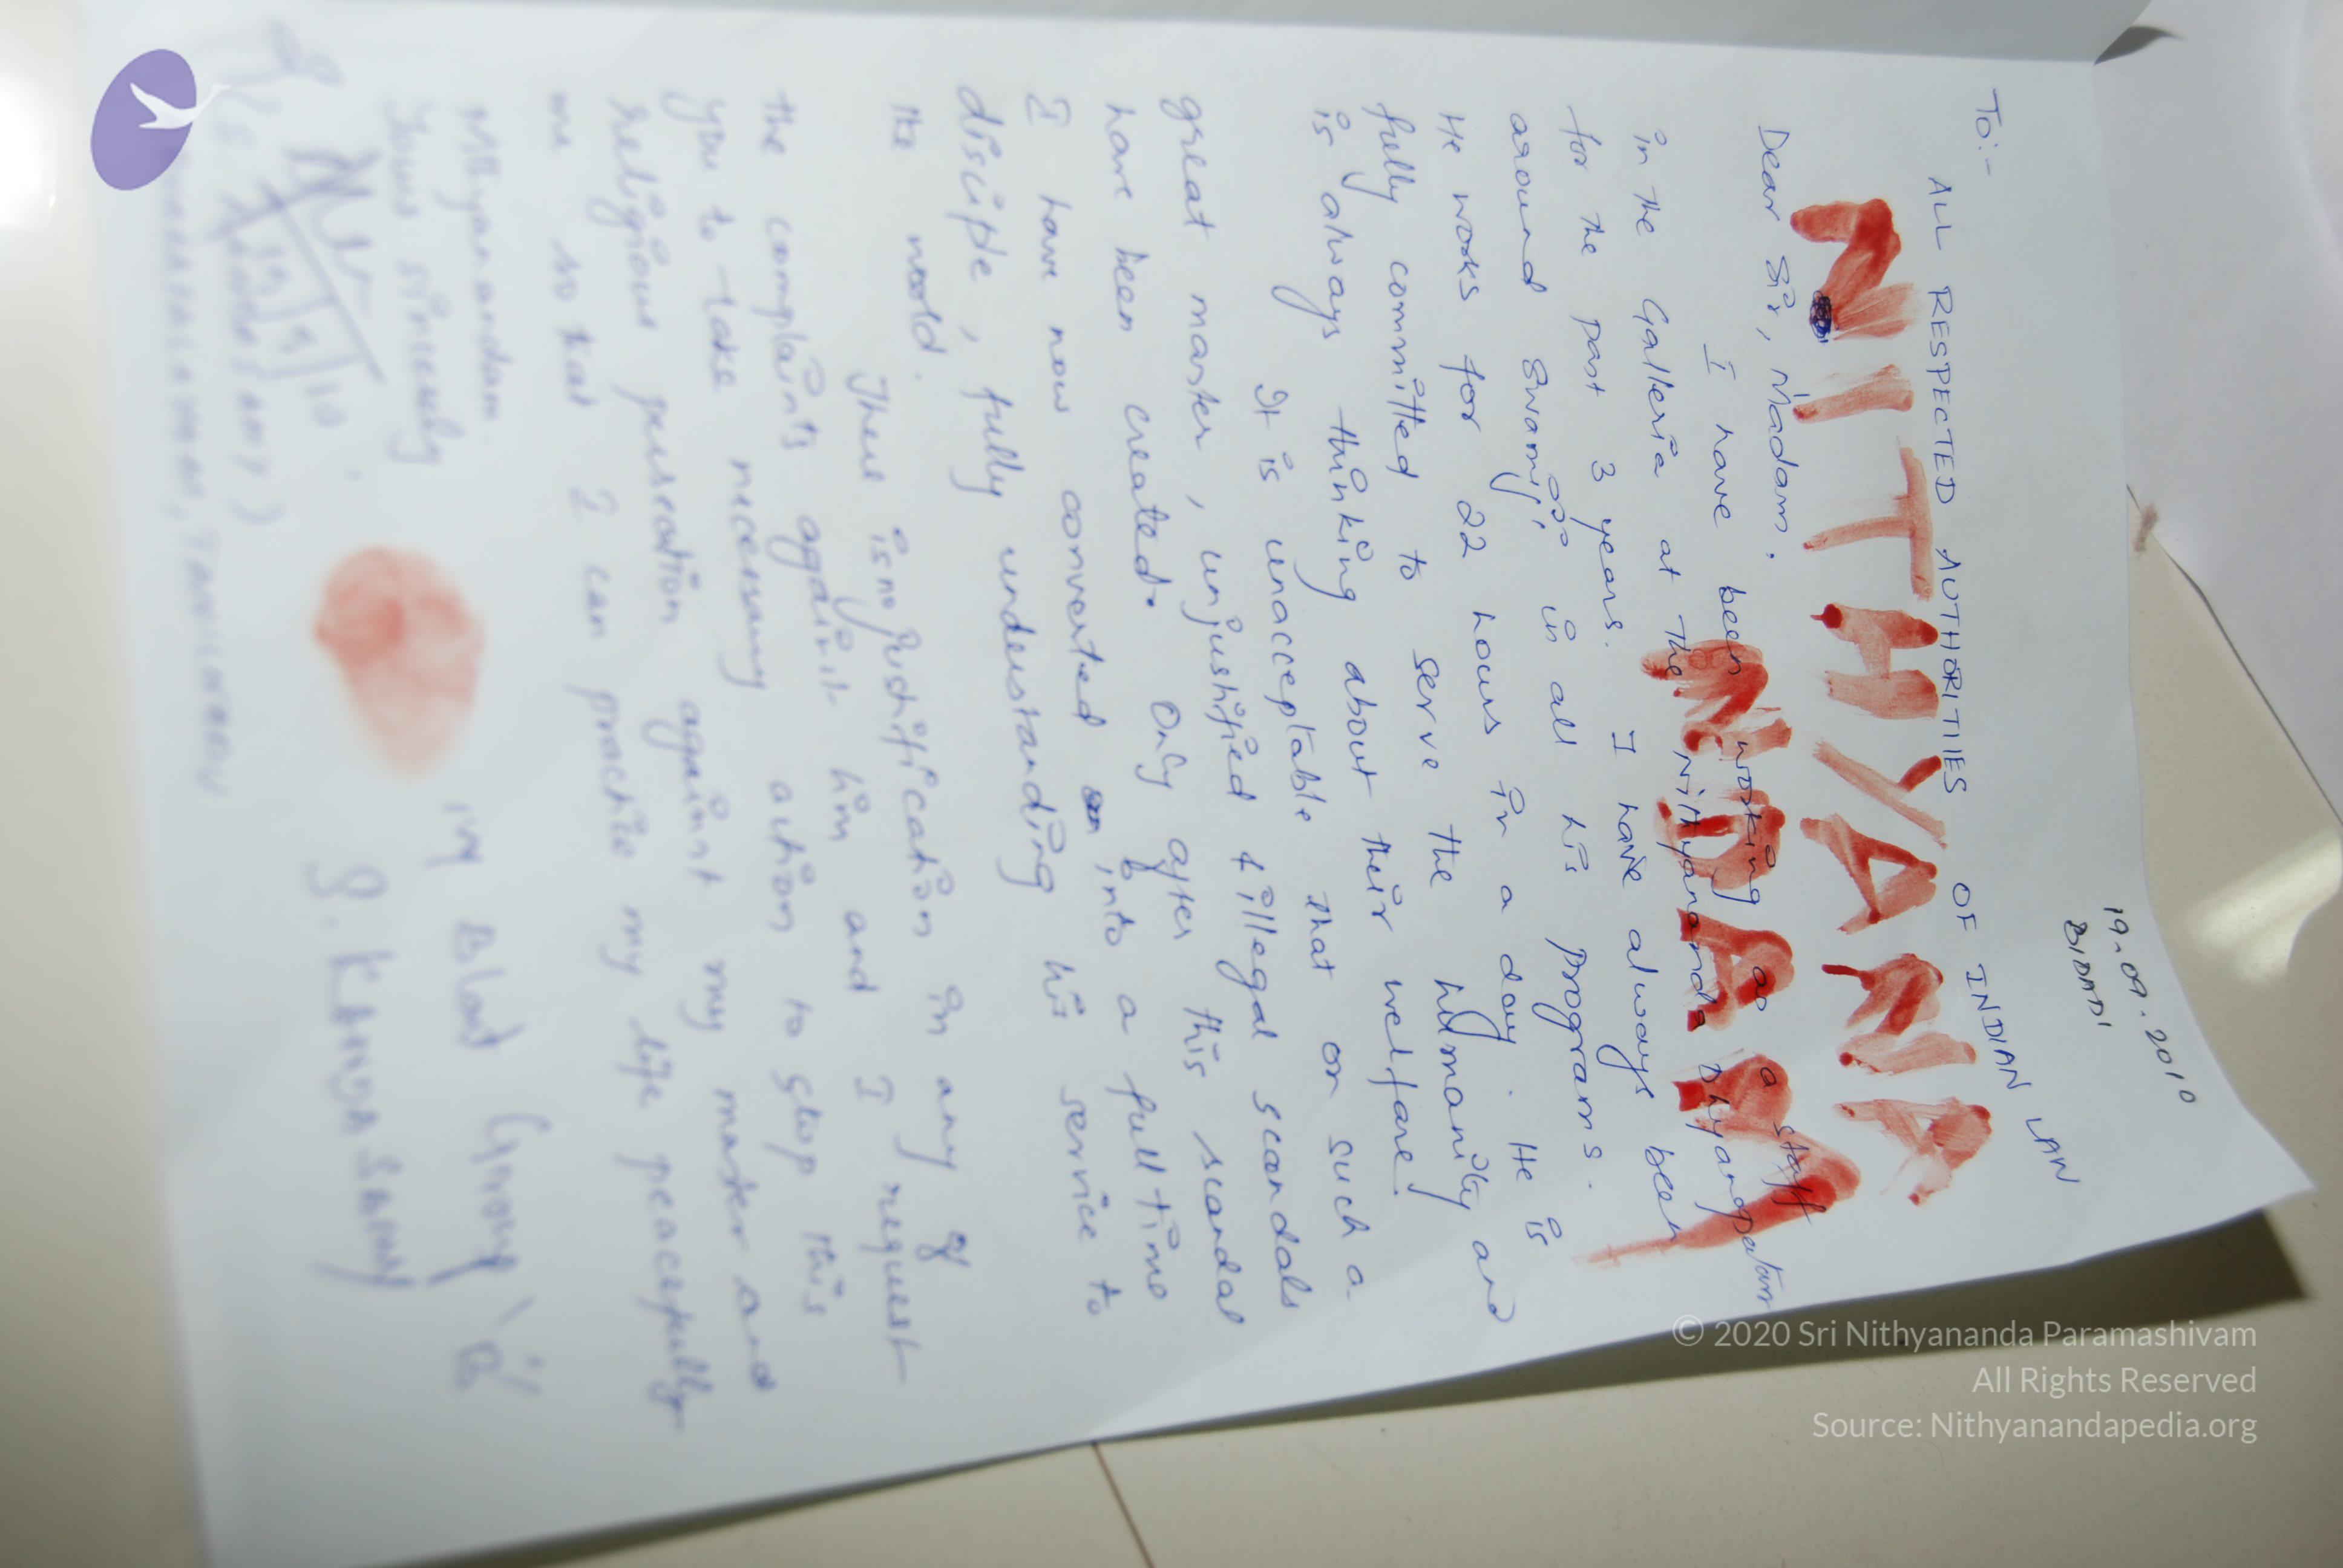 19.09.2010
BIDADI
To:-
ALL RESPECTED AUTHORITIES OF INDIAN LAW
NITHYANA
Dear Sir, Madam.
NDAM
I have been working as a staff
in the Galleria at the Nithyananda Dhyanapeetam
for the past 3 years. I have always been
around Swamiji in all his programs.
He works for 22 hours in a day. He is
fully committed to serve the humanity and
is always thinking about their welfare!
It is unacceptable that on such a
great master, unjustified & illegal scandals
have been created. Only after this scandal
I have now converted into a full time
disciple, fully understanding his service to
the world.
There is no justification in any of
the complaints against him and I request
you to take necessary action to stop this
religious persecution against my master and
me so that I can practice my life peacefully
Nithyanandam.
Yours sincerely
My Blood Group 'B'
19/9/10
S. KANDASAMY
© 2020 Sri Nithyananda Paramashivam
All Rights Reserved
Source: Nithyanandapedia.org